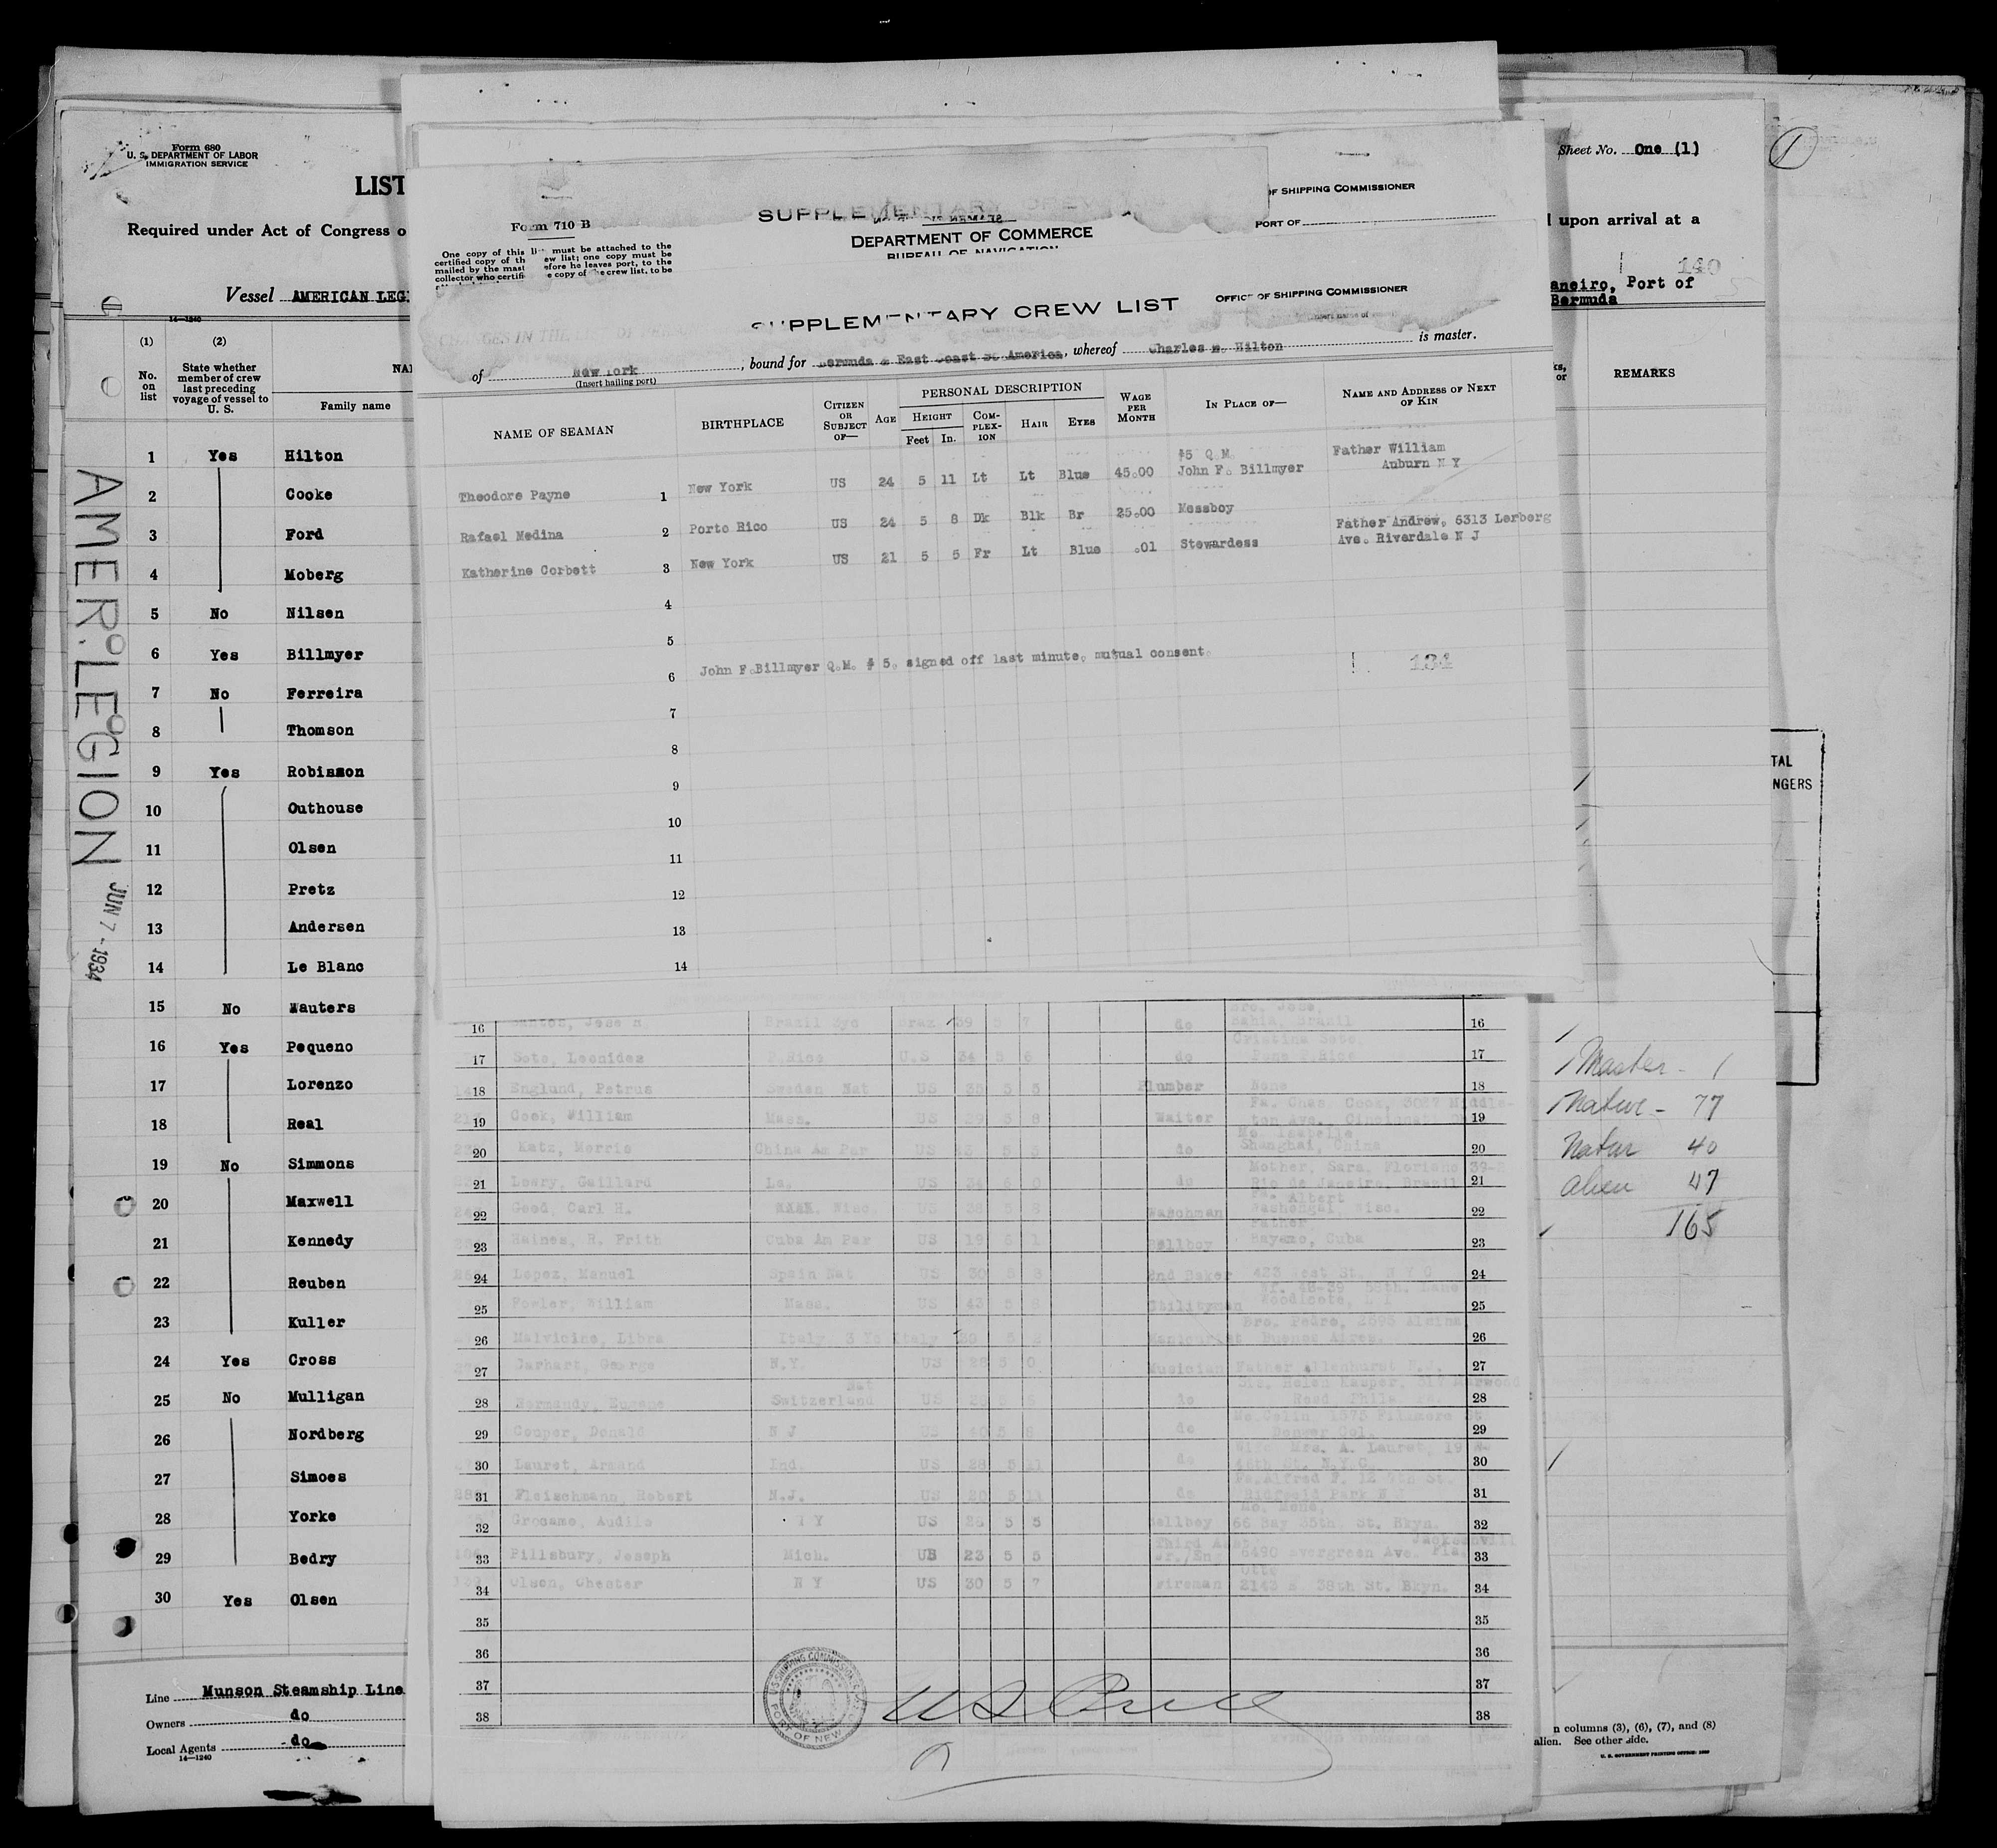 Form 680
U. S. DEPARTMENT OF LABOR
IMMIGRATION SERVICE
LIST
Required under Act of Congress o
Vessel AMERICAN LEG
14—1240
(1) (2)
No. on list
State whether member of crew last preceding voyage of vessel to U. S.
NA
Family name
1 Yes Hilton
2 Cooke
3 Ford
4 Moberg
5 No Nilsen
6 Yes Billmyer
7 No Ferreira
8 Thomson
9 Yes Robinson
10 Outhouse
11 Olsen
12 Pretz
13 Andersen
14 Le Blanc
15 No Wauters
16 Yes Pequeno
17 Lorenzo
18 Real
19 No Simmons
20 Maxwell
21 Kennedy
22 Reuben
23 Kuller
24 Yes Cross
25 No Mulligan
26 Nordberg
27 Simoes
28 Yorke
29 Bedry
30 Yes Olsen
Line Munson Steamship Line
Owners do
Local Agents do
14—1240
AMER. LEGION
JUN 7 - 1934
Form 710 B
One copy of this must be attached to the
certified copy of th ew list; one copy must be
mailed by the mast efore he leaves port, to the
collector who certifi e copy of the crew list, to be
DEPARTMENT OF COMMERCE
BUREAU OF NAVIGATION
OF SHIPPING COMMISSIONER
PORT OF
SUPPLEMENTARY CREW LIST
OFFICE OF SHIPPING COMMISSIONER
of New York, bound for Bermuda & East Coast So America, whereof Charles M. Hilton is master.
(Insert hailing port)
NAME OF SEAMAN
BIRTHPLACE
CITIZEN OR SUBJECT OF—
AGE
PERSONAL DESCRIPTION
HEIGHT
Feet In.
COMPLEXION
HAIR
EYES
WAGE PER MONTH
IN PLACE OF—
NAME AND ADDRESS OF NEXT OF KIN
#5 Q.M. Father William
Theodore Payne 1 New York US 24 5 11 Lt Lt Blue 45.00 John F. Billmyer Auburn N Y
Rafael Medina 2 Porto Rico US 24 5 8 Dk Blk Br 25.00 Messboy
Father Andrew, 6313 Lerberg
Katherine Corbett 3 New York US 21 5 5 Fr Lt Blue .01 Stewardess Ave. Riverdale N J
4
5
6 John F.Billmyer Q.M. # 5, signed off last minute, mutual consent. 134
7
8
9
10
11
12
13
14
16 Santos, Jose Brazil 39 5 7 do Bahia, Brazil 16
Cristina Soto,
17 Soto, Leonides P.Rico U.S 34 5 6 do 17
18 Englund, Petrus Sweden Nat US 35 5 5 Plumber None 18
19 Cook, William Mass. US 29 5 8 Waiter 19
20 Katz, Morris China Am Par US 23 5 do Shanghai, China 20
Mother, Sara, Floriano 39-
21 Leary, Gaillard La. US 34 6 0 do Rio de Janeiro, Brazil 21
Fa. Albert
22 Good, Carl H. Wisc. US 38 5 8 Waschman 22
Father,
23 Haines, R. Frith Cuba Am Par US 19 6 1 Bellboy Bayamo, Cuba 23
24 Lopez, Manuel Spain Nat US 30 5 8 2nd Baker 423 West St. N Y C 24
25 Fowler, William Mass. US 43 5 8 Utilityman 25
26 Malvicino, Libra Italy 5 2 Manicurist Buenos Aires. 26
27 Carhart, George N.Y. US 28 5 0 Musician Father Allenhurst N.J. 27
28 Normandy, Eugene Switzerland Nat US do 28
29 Couper, Donald N J US 40 5 8 do Denver Col. 29
Wife Mrs. A. Lauret, 19
30 Lauret, Armand Ind. US 28 5 11 do 46th St. N.Y.C. 30
31 Fleischmann, Robert N.J. US 20 5 11 do 31
32 Grosame, Audilo N Y US 26 5 5 Bellboy 66 Bay 35th. St. Bkyn. 32
33 Pillsbury, Joseph Mich. US 23 5 5 Third Asst 6490 Evergreen Ave. 33
Otto
34 Olsen, Chester N Y US 30 5 7 Fireman 2143 38th St. Bkyn. 34
35 35
36 36
37 37
38 38
US SHIPPING COMMISSIONER PORT OF NEW
Sheet No. One (1)
1
upon arrival at a
140
aneiro, Port of
Bermuda
REMARKS
TAL
NGERS
Master - 1
Native - 77
Natur 40
alien 47
165
n columns (3), (6), (7), and (8)
alien. See other side.
U. S. GOVERNMENT PRINTING OFFICE: